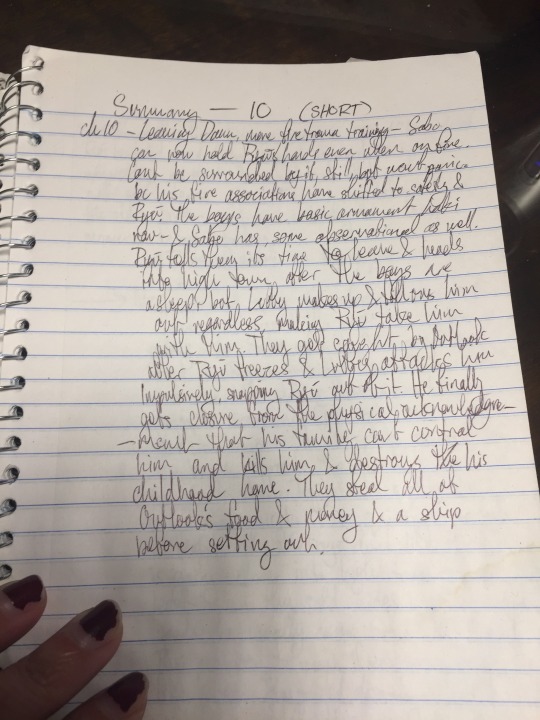 Summary — 10 (SHORT)
ch 10 - Leaving Dawn, more fire trauma training - Sabo
can now hold Ryū's hands even when on fire.
Can't be surrounded by it, still, but won't panic
bc his fire association have shifted to safety &
Ryū. The boys have basic armament haki
now & Sabo has some observational as well.
Ryū tells them its time to leave & heads
into high town after the boys are
asleep, but Luffy wakes up & follows him
out regardless, making Ryū take him
with him. They get caught by Outlook
after Ryū freezes & Luffy attacks him
impulsively, snapping Ryū out of it. He finally
gets closure from the physical acknowledge-
- ment that his family can't control
him and kills him, & destroys the his
childhood home. They steal all of
Outlook's food & money & a ship
before setting out.